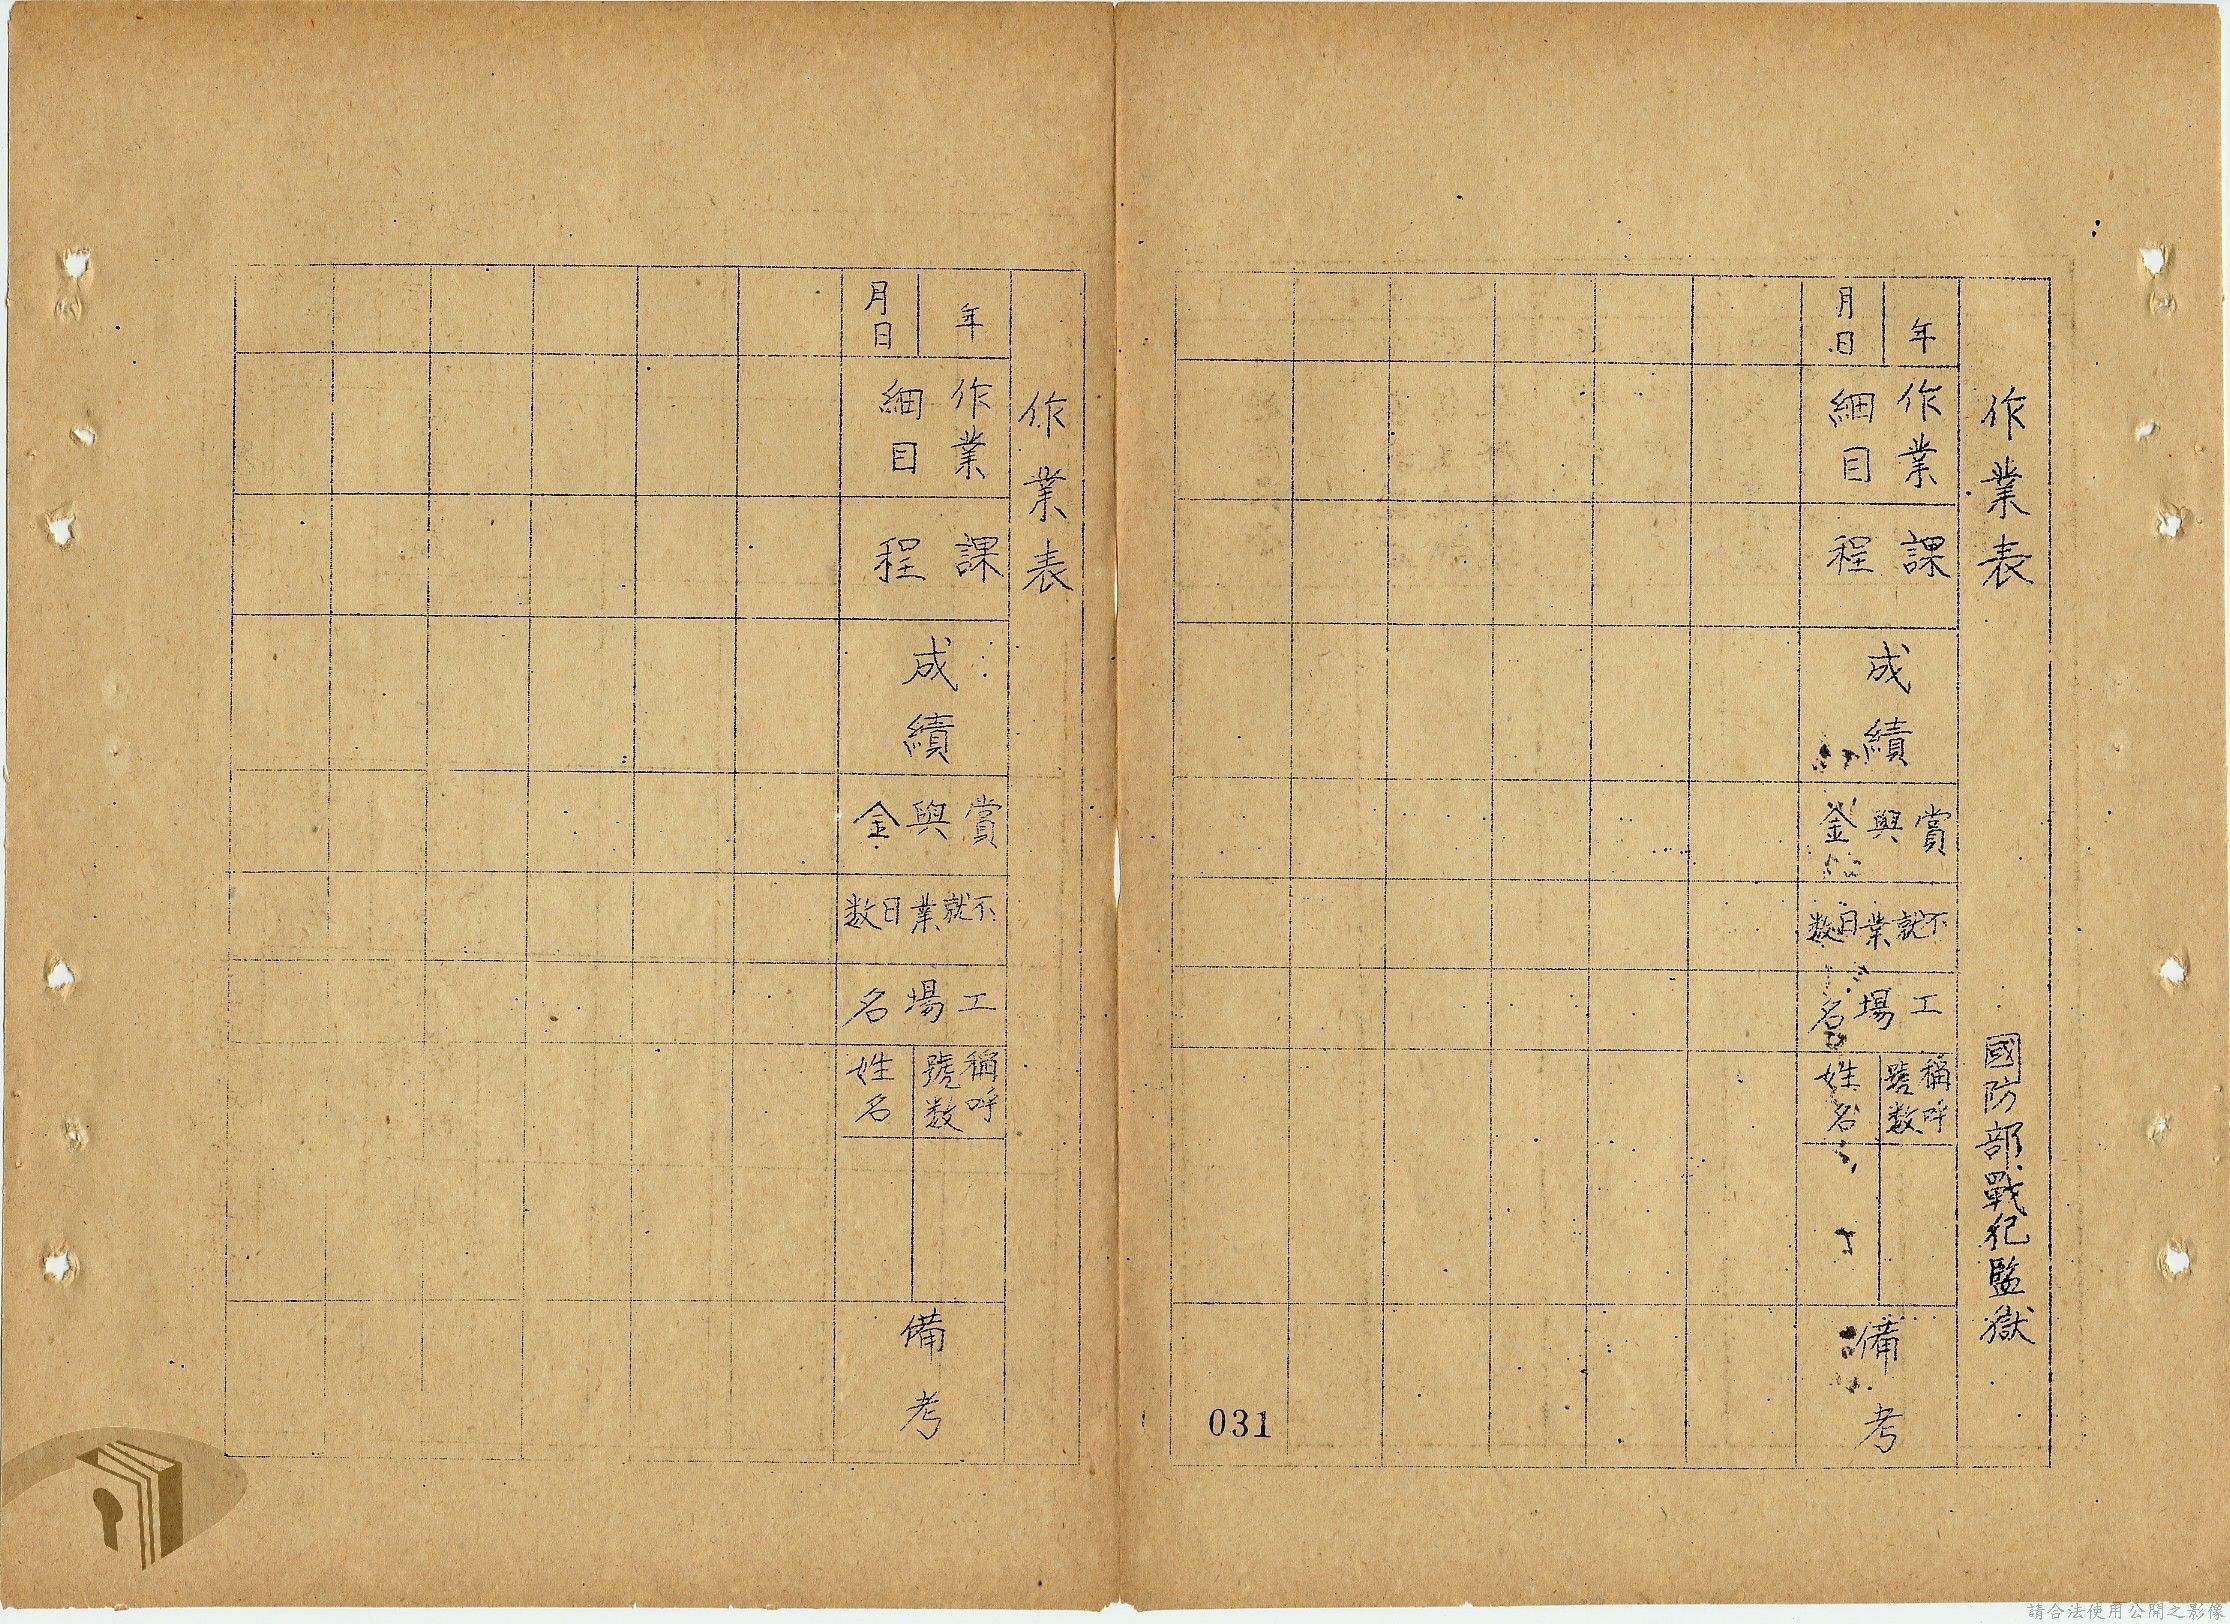 作業表 國防部戰犯監獄
年 月日
作業細目
課程
成績
賞與金
不就業日数
工場名
稱呼號数
姓名
備考
031
作業表
年 月日
作業細目
課程
成績
賞與金
不就業日数
工場名
稱呼號数
姓名
備考
請合法使用公開之影像